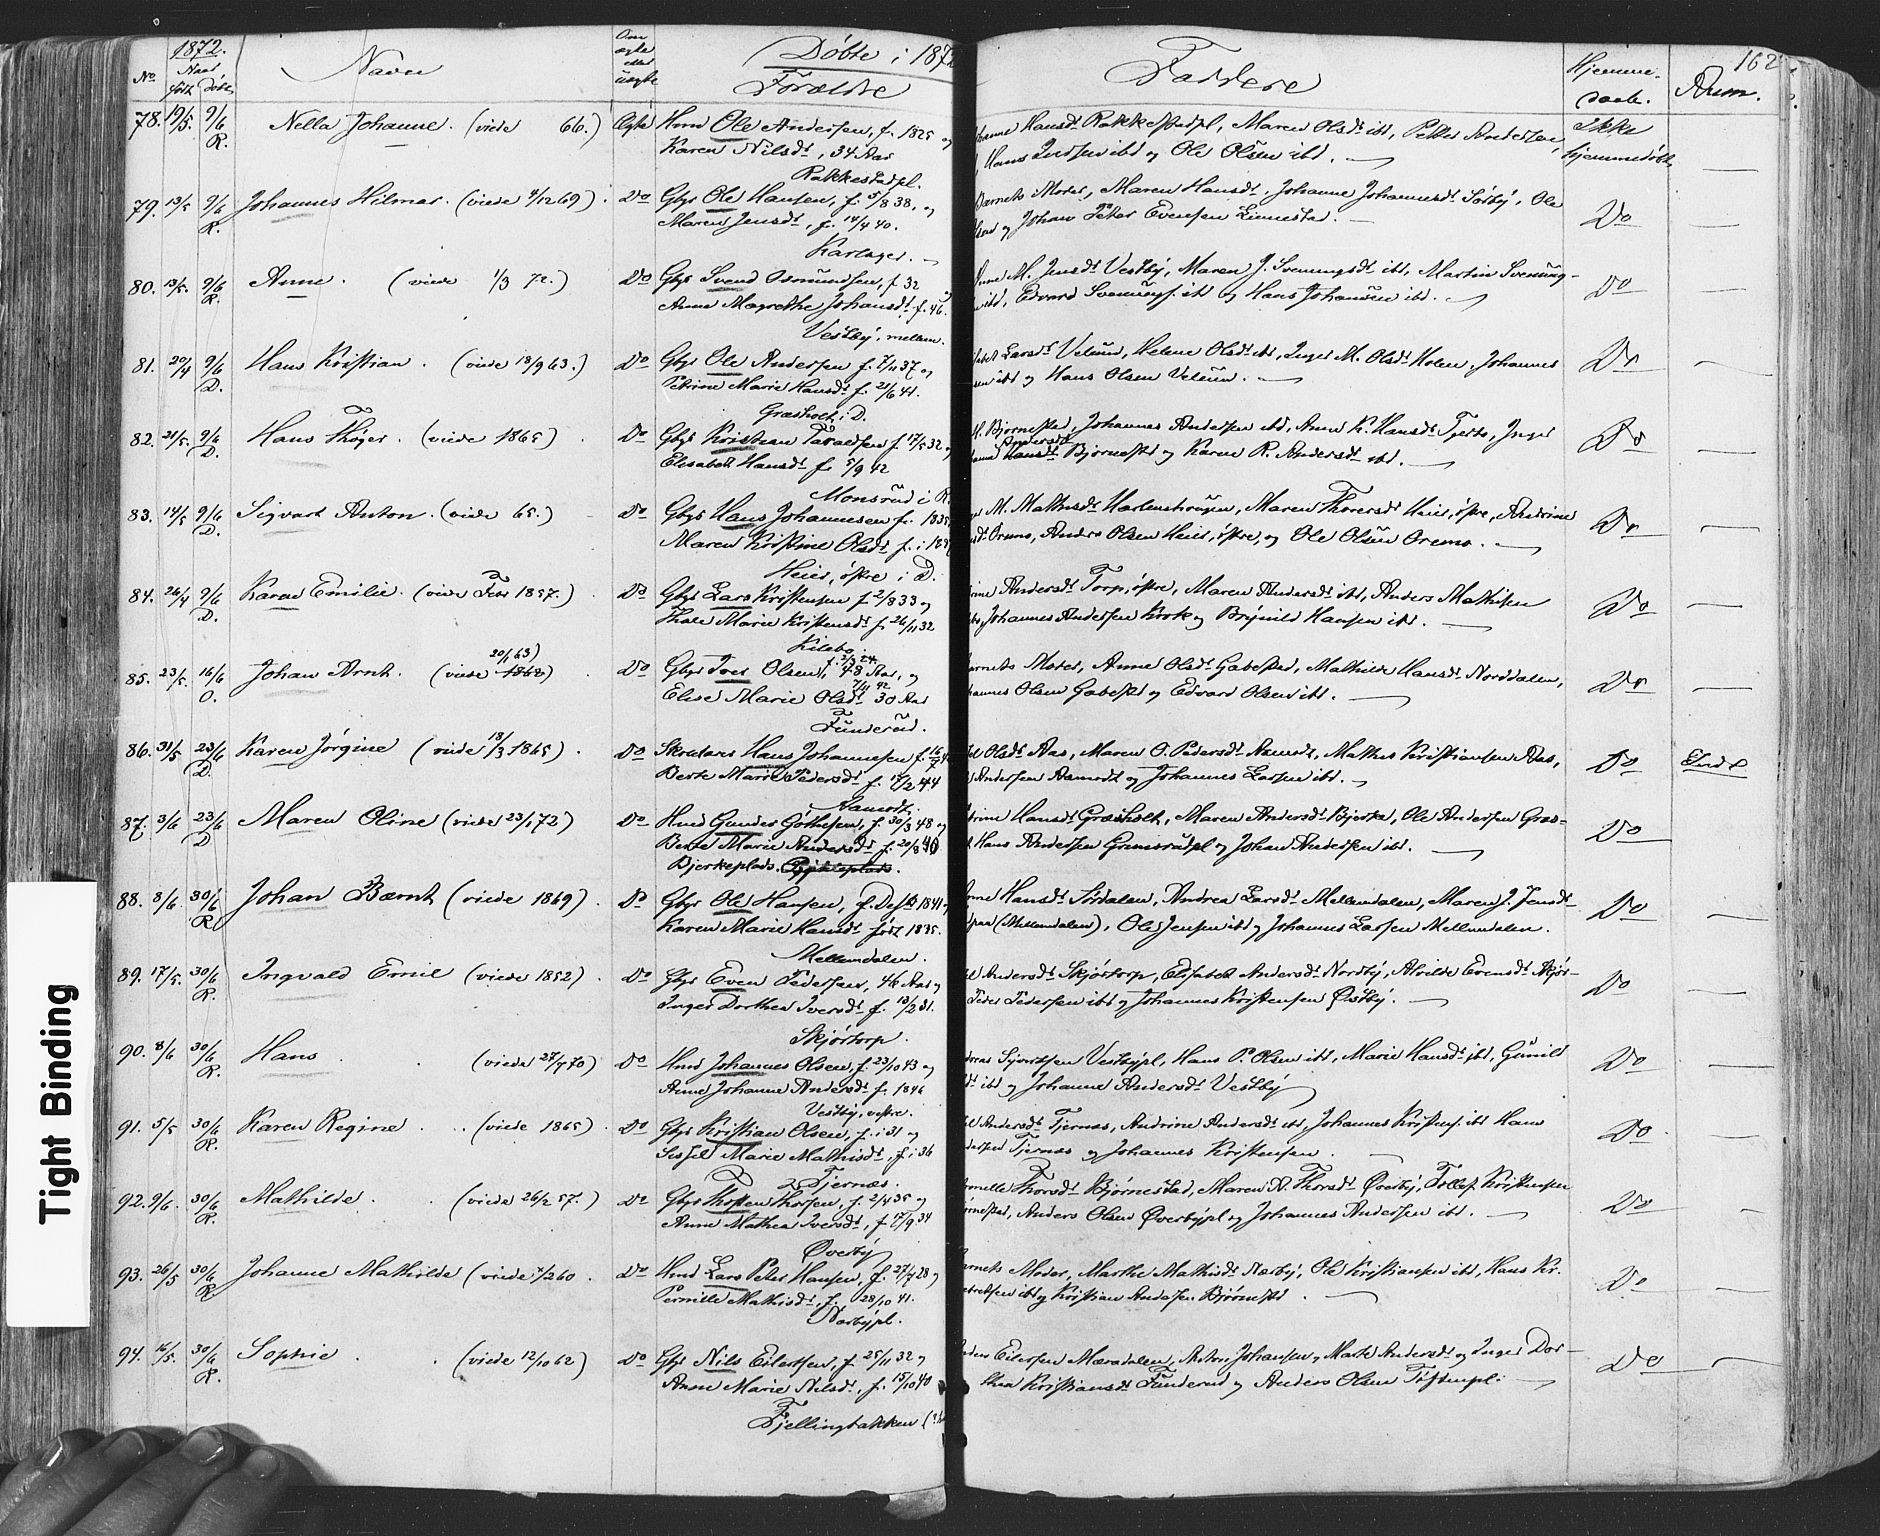 1872.
No
Naar
født Døbt
Navn
Om
ægte
eller
uægte
Døbte i 187
Forældre
Faddere
Hjemme-
daab.
Anm.
162
78. 19/5. 9/6 R. Nella Johanne. (viede 66.) Ægte Hmd Ole Andersen, f. 1825 og
Karen Nilsdt, 34 Aar
Rakkestadpl.
Hansdt Rakkestadpl, Maren Olsdt ibd, Petter Andersen,
Hans ibd og Ole Olsen ibd.
Ikke
hjemmedøbt
79. 13/5 9/6 R. Johannes Hilmar. (viede 4/12 69). Do Gbr Ole Hansen, f. 5/8 38, og
Maren Jensdt, f. 14/4 40.
Karlager.
Barnets Moder, Maren Hansdt, Johanne Johannesdt Sørby, Ole
og Johan Peter Evensen Linnestad.
Do
80. 13/5. 9/6 R. Anne. (viede 1/3 72.) Do Gbr Svend Osmundsen, f. 32
Anne Magrethe Johansdt f. 46.
Vestby, mellem.
M. Jensdt Vestby, Maren J. Svenungsdt ibd, Martin Svenung-
ibd, Edvard Svenungs. ibd og Hans Johansen ibd.
Do
81. 20/4 9/6 D. Hans Kristian. (viede 18/9 63.) Do Gbr Ole Andersen f. 7/11 37 og
Petrine Marie Hansdt f. 21/6 41.
Græsholt i D.
Larsdt Velund, Helene Olsdt ibd, Inger M. Olsdt Holen, Johannes
ibd og Hans Olsen Velund.
Do
82. 21/5. 9/6 D. Hans Thøger. (viede 1865) Do Gbr Kristian Taraldsen f. 17/5 32 og
Elisabet Hansdt f. 5/9 42
Monsrud i R.
M. Bjørnestad, Johannes Andersen ibd, Anne K. Hansdt Tjerbo, Inger
Andersdt Bjørnestad og Karen R. Andersdt ibd.
Do
83. 14/5 9/6 D. Sigvart Anton. (viede 65.) Do Gbr Hans Johannesen f. 1835
Maren Kristine Olsdt f. i 183
Heier, østre i D.
M. Mathisdt Harlemhaugen, Maren Thorersdt Heier, østre, Andrine
Oremo, Anders Olsen Heier, østre, og Ole Olsen Oremo.
Do
84. 26/4 9/6 D. Karen Emilie. (viede Febr 1857.) Do Gbr Lars Kristensen f. 2/8 33 og
Thale Marie Kristensdt f. 26/11 32
Kilebo.
Andersdt Torp, østre, Maren Andersdt ibd, Anders Mathisen
Johannes Andersen Krok og Brynild Hansen ibd.
Do
85. 23/5. 16/6 O. Johan Arnt. (viede 1862 20/1 63) Do Gbr Iver Olsen, 48 Aar, og
Elise Marie Olsdt 30 Aar
Funderud.
Barnets Moder, Anne Olsdt Gabestad, Mathilde Hansdt Norddalen,
Olsen Gabestad og Edvard Olsen ibd.
Do
86. 31/5 23/6 D. Karen Jørgine (viede 18/3 1865). Do Skrædder Hans Johannesen f. 16/7 4
Berte Marie Pedersdt f. 17/2 44
Aamodt.
Olsdt Aas, Maren O. Pedersdt Aamodt, Mathis Kristiansen Aas,
Andersen Aamodt og Johannes Larsen ibd.
Do
87. 3/6 23/6 D Maren Oline (viede 23/1 72) Do Hmd Gunder Gøthesen, f. 30/3 48 og
Berte Marie Andersdt f. 20/8 40
Bjerkeplads.
Hansdt Græsholt, Maren Andersdt Bjerke, Ole Andersen Græs-
Hans Andersen Gramsrudpl og Johan Andersen ibd.
Do
88. 8/6 30/6 R. Johan Bernt (viede 1869). Do Gbr Ole Hansen, f. Desbr 1841 og
Karen Marie Hansdt født 1835.
Mellemdalen.
Hansdt Sørdalen, Andrea Larsdt Mellemdalen, Maren J. Jensdt
(Mellemdalen), Ole Jensen ibd og Johannes Larsen Mellemdalen.
Do
89. 17/5. 30/6 R. Ingvald Emil (viede 1852). Do Gbr Even Pedersen, 46 Aar og
Inger Dorthea Iversdt f. 13/2 31.
Skjørtorp.
Andersdt Skjørtorp, Elisabet Andersdt Nordby, Alvilde Evensdt Skjør-
Peder Pedersen ibd og Johannes Kristensen Østby.
Do
90. 8/6 30/6 R. Hans. (viede 27/7 70) Do Hmd Johannes Olsen, f. 23/10 43 og
Anne Johanne Andersdt f. 1846
Vestby, vestre.
Sjvertsen Vestbypl, Hans P. Olsen ibd, Marie Hansdt ibd, Gunild
ibd og Johanne Andersdt Vestby
Do
91. 5/5 30/6 R. Karen Regine. (viede 1865). Do Gbr Kristian Olsen, f. i 31 og
Sissel Marie Mathisdt, f. i 36
Tjernæs.
Andersdt Tjernæs, Andrine Andersdt ibd, Johannes Kristens. ibd Hans
Tjernæs og Johannes Kristensen.
Do
92. 9/6. 30/6 R. Mathilde. (viede 26/2 57.) Do Gbr Thosten Thorsen, f. 2/4 35 og
Anne Mathea Iversdt, f. 17/9 34
Øverby
Thorsdt Bjørnestad, Maren A. Thorsdt Øverby, Tollef Kristensen
Anders Olsen Øverbypl og Johannes Andersen ibd.
Do
93. 26/5 30/6 R Johanne Mathilde (viede /2 60. Do Hmd Lars Peter Hansen, f. 27/7 28 og
Pernille Mathisdt, f. 28/10 41.
Nærbypl.
Barnets Moder, Marthe Mathisdt Nærby, Ole Kristiansen ibd, Hans Kr.
ibd og Kristian Andersen Bjørnestad.
Do
94. 16/5. 30/6 R. Sophie. (viede 12/10 62) Do Gbr Nils Eilertsen, f. 25/11 32 og
Anne Marie Nilsdt, f. 15/10 40
Fjellingbakken
Eilertsen Mæradalen, Anton Johansen og Marte Andersdt og Inger Dor-
thea Kristiansdt Funderud og Anders Olsen Toftenpl.
Do
Tight Binding